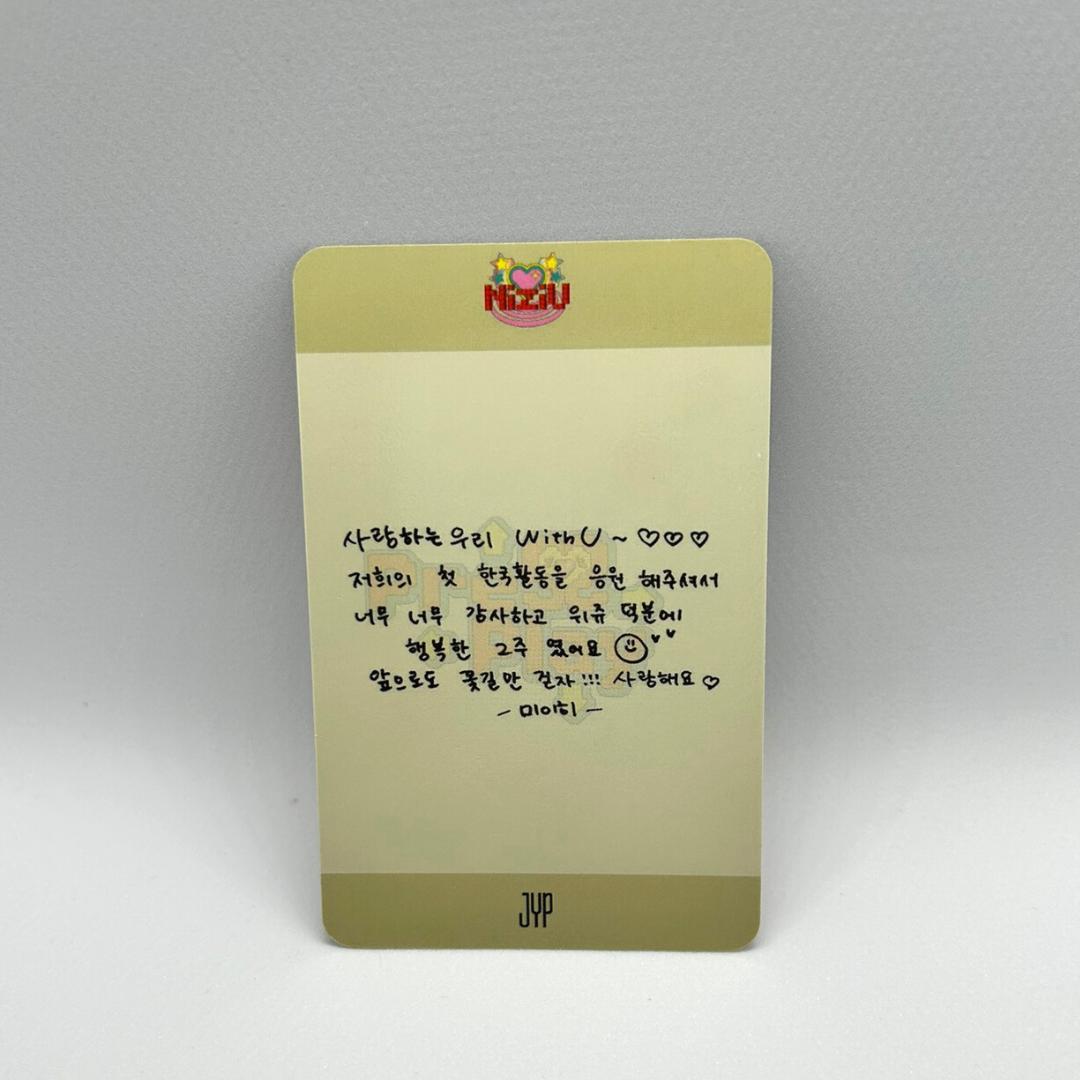 NiziU
사랑하는 우리 WithU ~ ♡♡♡
저희의 첫 한국활동을 응원 해주셔서
너무 너무 감사하고 위쥬 덕분에
행복한 2주 였어요
앞으로도 꽃길만 걷자!!! 사랑해요♡
- 미이히 -
Press
Play
JYP